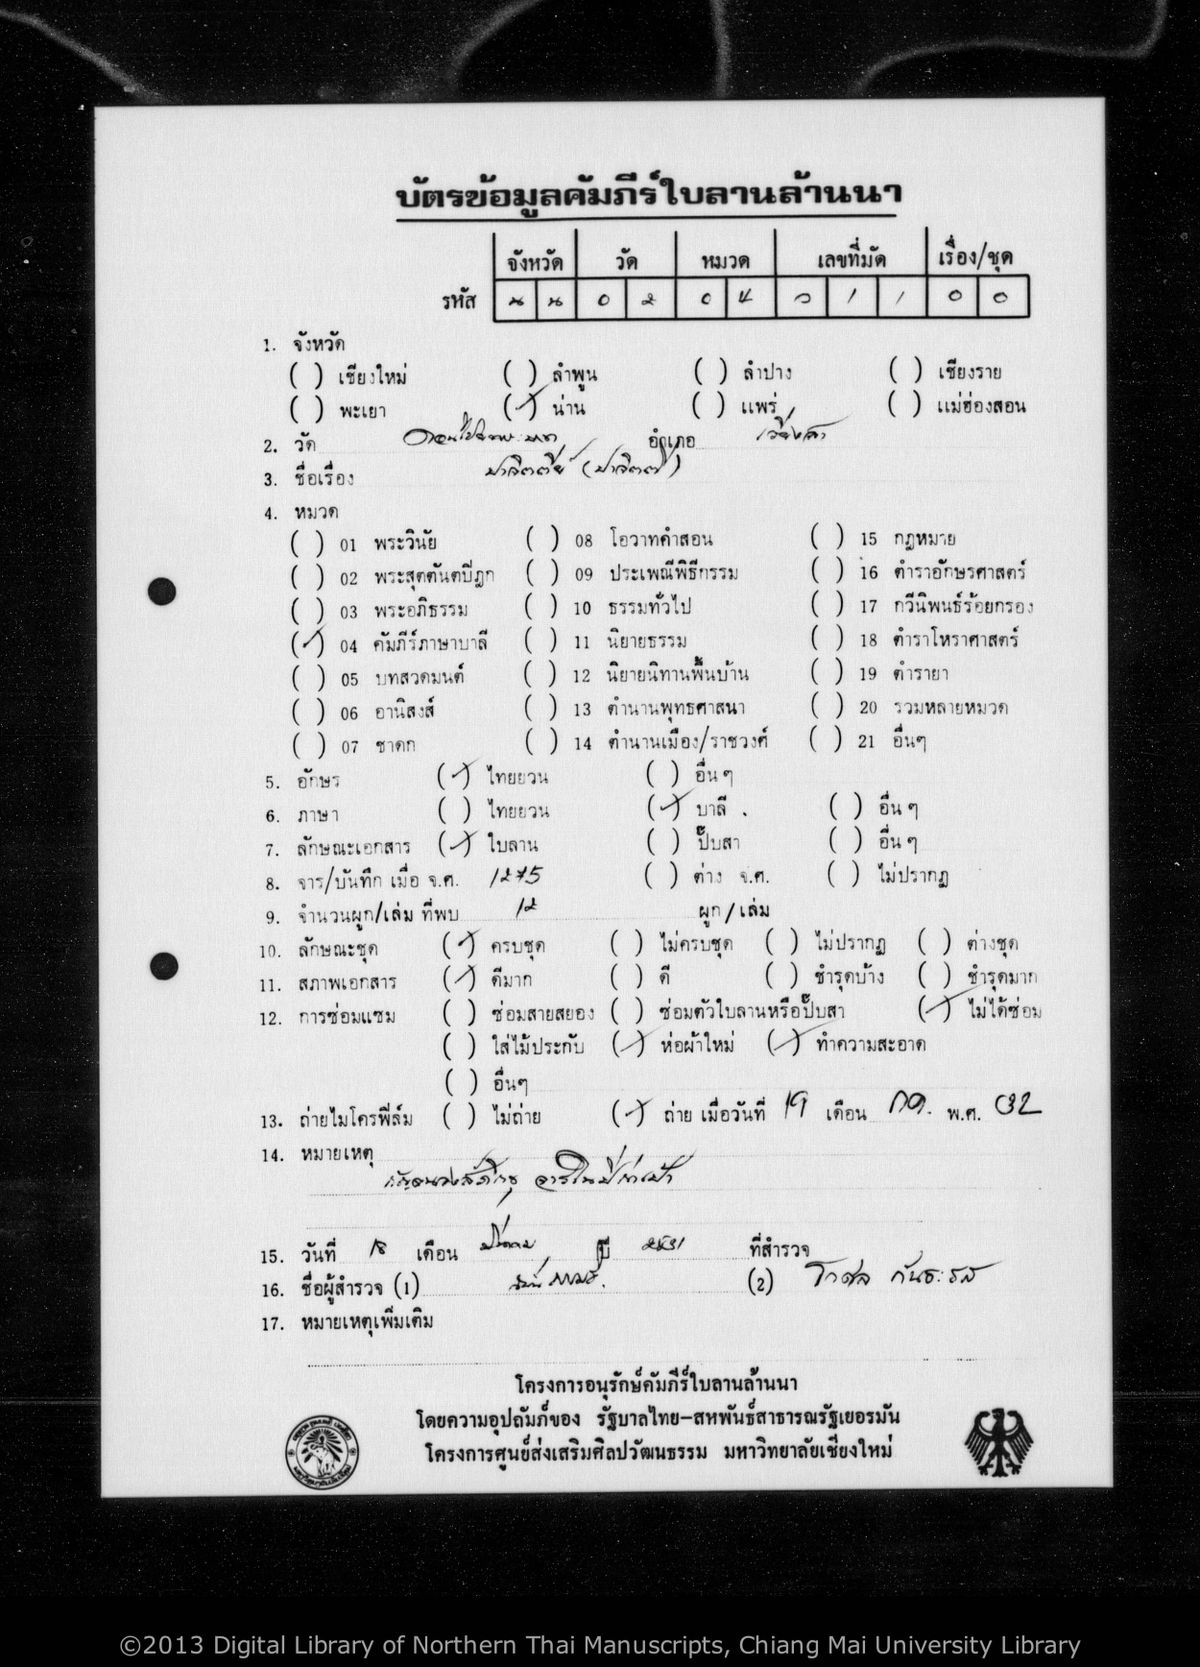 บัตรข้อมูลคัมภีร์ใบลานล้านนา
จังหวัด วัด หมวด เลขที่มัด เรื่อง/ชุด
รหัส น น 0 2 0 4 0 1 1 0 0
1. จังหวัด
( ) เชียงใหม่ ( ) ลำพูน ( ) ลำปาง ( ) เชียงราย
( ) พะเยา (✓) น่าน ( ) แพร่ ( ) แม่ฮ่องสอน
2. วัด อำเภอ เวียงสา
3. ชื่อเรื่อง ปาจิตตีย์ (ปาจิตตี)
4. หมวด
( ) 01 พระวินัย ( ) 08 โอวาทคำสอน ( ) 15 กฎหมาย
( ) 02 พระสุตตันตปิฎก ( ) 09 ประเพณีพิธีกรรม ( ) 16 ตำราอักษรศาสตร์
( ) 03 พระอภิธรรม ( ) 10 ธรรมทั่วไป ( ) 17 กวีนิพนธ์ร้อยกรอง
(✓) 04 คัมภีร์ภาษาบาลี ( ) 11 นิยายธรรม ( ) 18 ตำราโหราศาสตร์
( ) 05 บทสวดมนต์ ( ) 12 นิยายนิทานพื้นบ้าน ( ) 19 ตำรายา
( ) 06 อานิสงส์ ( ) 13 ตำนานพุทธศาสนา ( ) 20 รวมหลายหมวด
( ) 07 ชาดก ( ) 14 ตำนานเมือง/ราชวงศ์ ( ) 21 อื่นๆ
5. อักษร (✓) ไทยยวน ( ) อื่น ๆ
6. ภาษา ( ) ไทยยวน (✓) บาลี ( ) อื่น ๆ
7. ลักษณะเอกสาร (✓) ใบลาน ( ) ปั๊บสา ( ) อื่น ๆ
8. จาร/บันทึก เมื่อ จ.ศ. 1275 ( ) ต่าง จ.ศ. ( ) ไม่ปรากฏ
9. จำนวนผูก/เล่ม ที่พบ 12 ผูก/เล่ม
10. ลักษณะชุด (✓) ครบชุด ( ) ไม่ครบชุด ( ) ไม่ปรากฏ ( ) ต่างชุด
11. สภาพเอกสาร (✓) ดีมาก ( ) ดี ( ) ชำรุดบ้าง ( ) ชำรุดมาก
12. การซ่อมแซม ( ) ซ่อมสายสยอง ( ) ซ่อมตัวใบลานหรือปั๊บสา (✓) ไม่ได้ซ่อม
( ) ใส่ไม้ประกับ (✓) ห่อผ้าใหม่ (✓) ทำความสะอาด
( ) อื่นๆ
13. ถ่ายไมโครฟิล์ม ( ) ไม่ถ่าย (✓) ถ่าย เมื่อวันที่ 19 เดือน กค. พ.ศ. 32
14. หมายเหตุ
15. วันที่ 18 เดือน มีนาคม ปี 2531 ที่สำรวจ
16. ชื่อผู้สำรวจ (1) (2) โกศล กันธะรส
17. หมายเหตุเพิ่มเติม
โครงการอนุรักษ์คัมภีร์ใบลานล้านนา
โดยความอุปถัมภ์ของ รัฐบาลไทย-สหพันธ์สาธารณรัฐเยอรมัน
โครงการศูนย์ส่งเสริมศิลปวัฒนธรรม มหาวิทยาลัยเชียงใหม่
©2013 Digital Library of Northern Thai Manuscripts, Chiang Mai University Library